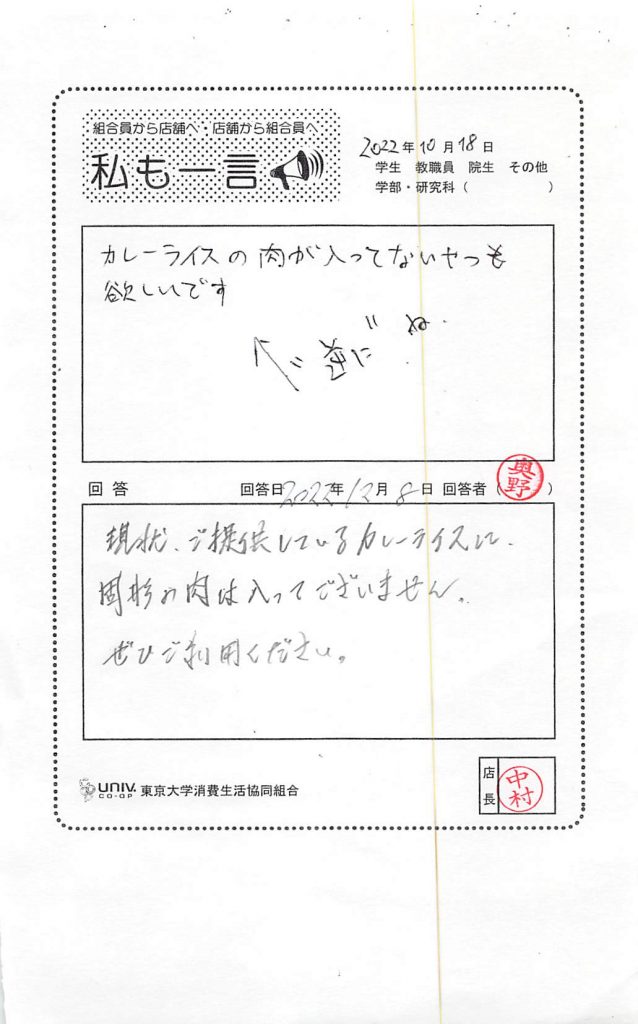 組合員から店舗へ・店舗から組合員へ
私も一言
2022年10月18日
学生 教職員 院生 その他
学部・研究科（ ）
カレーライスの肉が入ってないやつも
欲しいです
逆に ね.
回答 回答日2022年12月8日 回答者（奥野）
現状、ご提供しているカレーライスに、
固形の肉は入ってございません。
ぜひご利用ください。
UNIV. CO-OP 東京大学消費生活協同組合
店長 中村